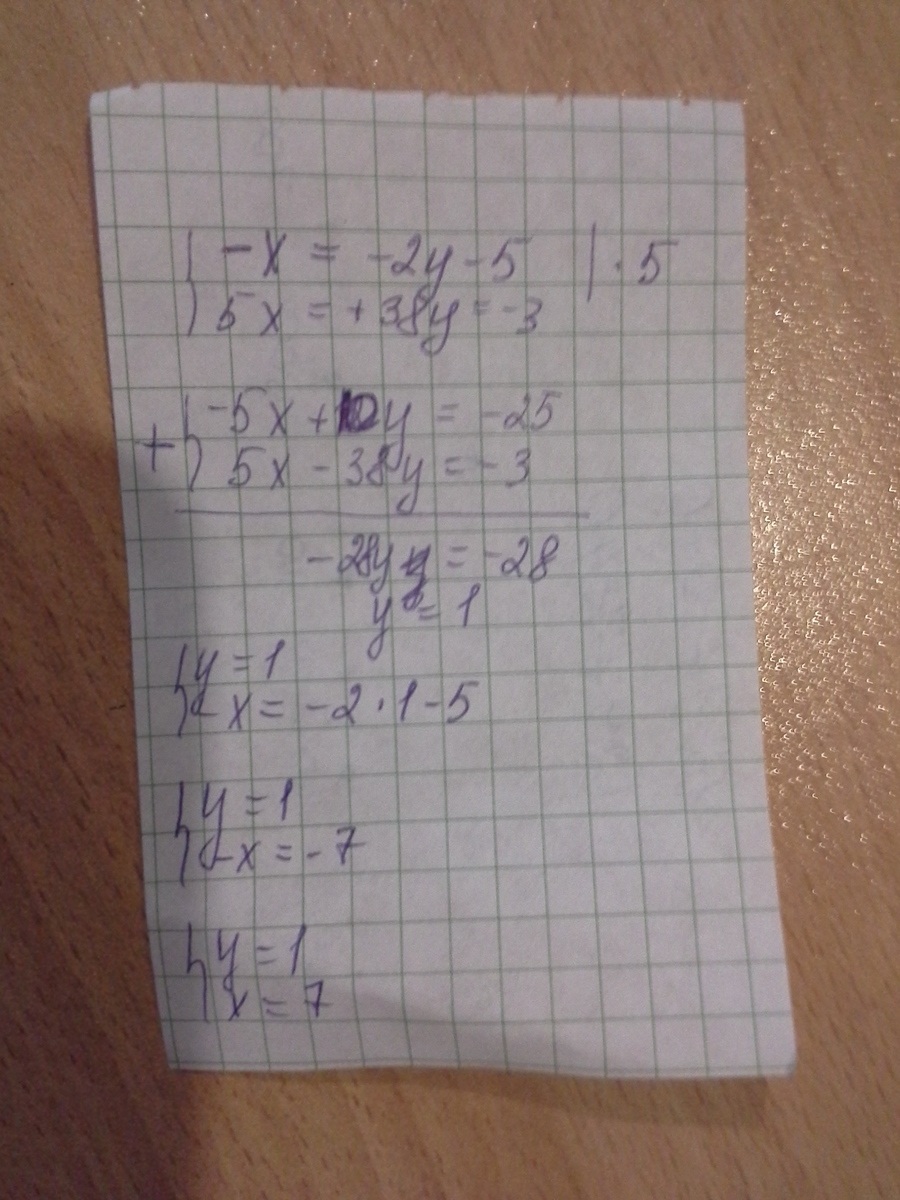 { -x = -2y - 5 | · 5
5x = + 38y = -3
+ { -5x + 10y = -25
5x - 38y = -3
-28y = -28
y = 1
{ y = 1
-x = -2 · 1 - 5
{ y = 1
-x = -7
{ y = 1
x = 7